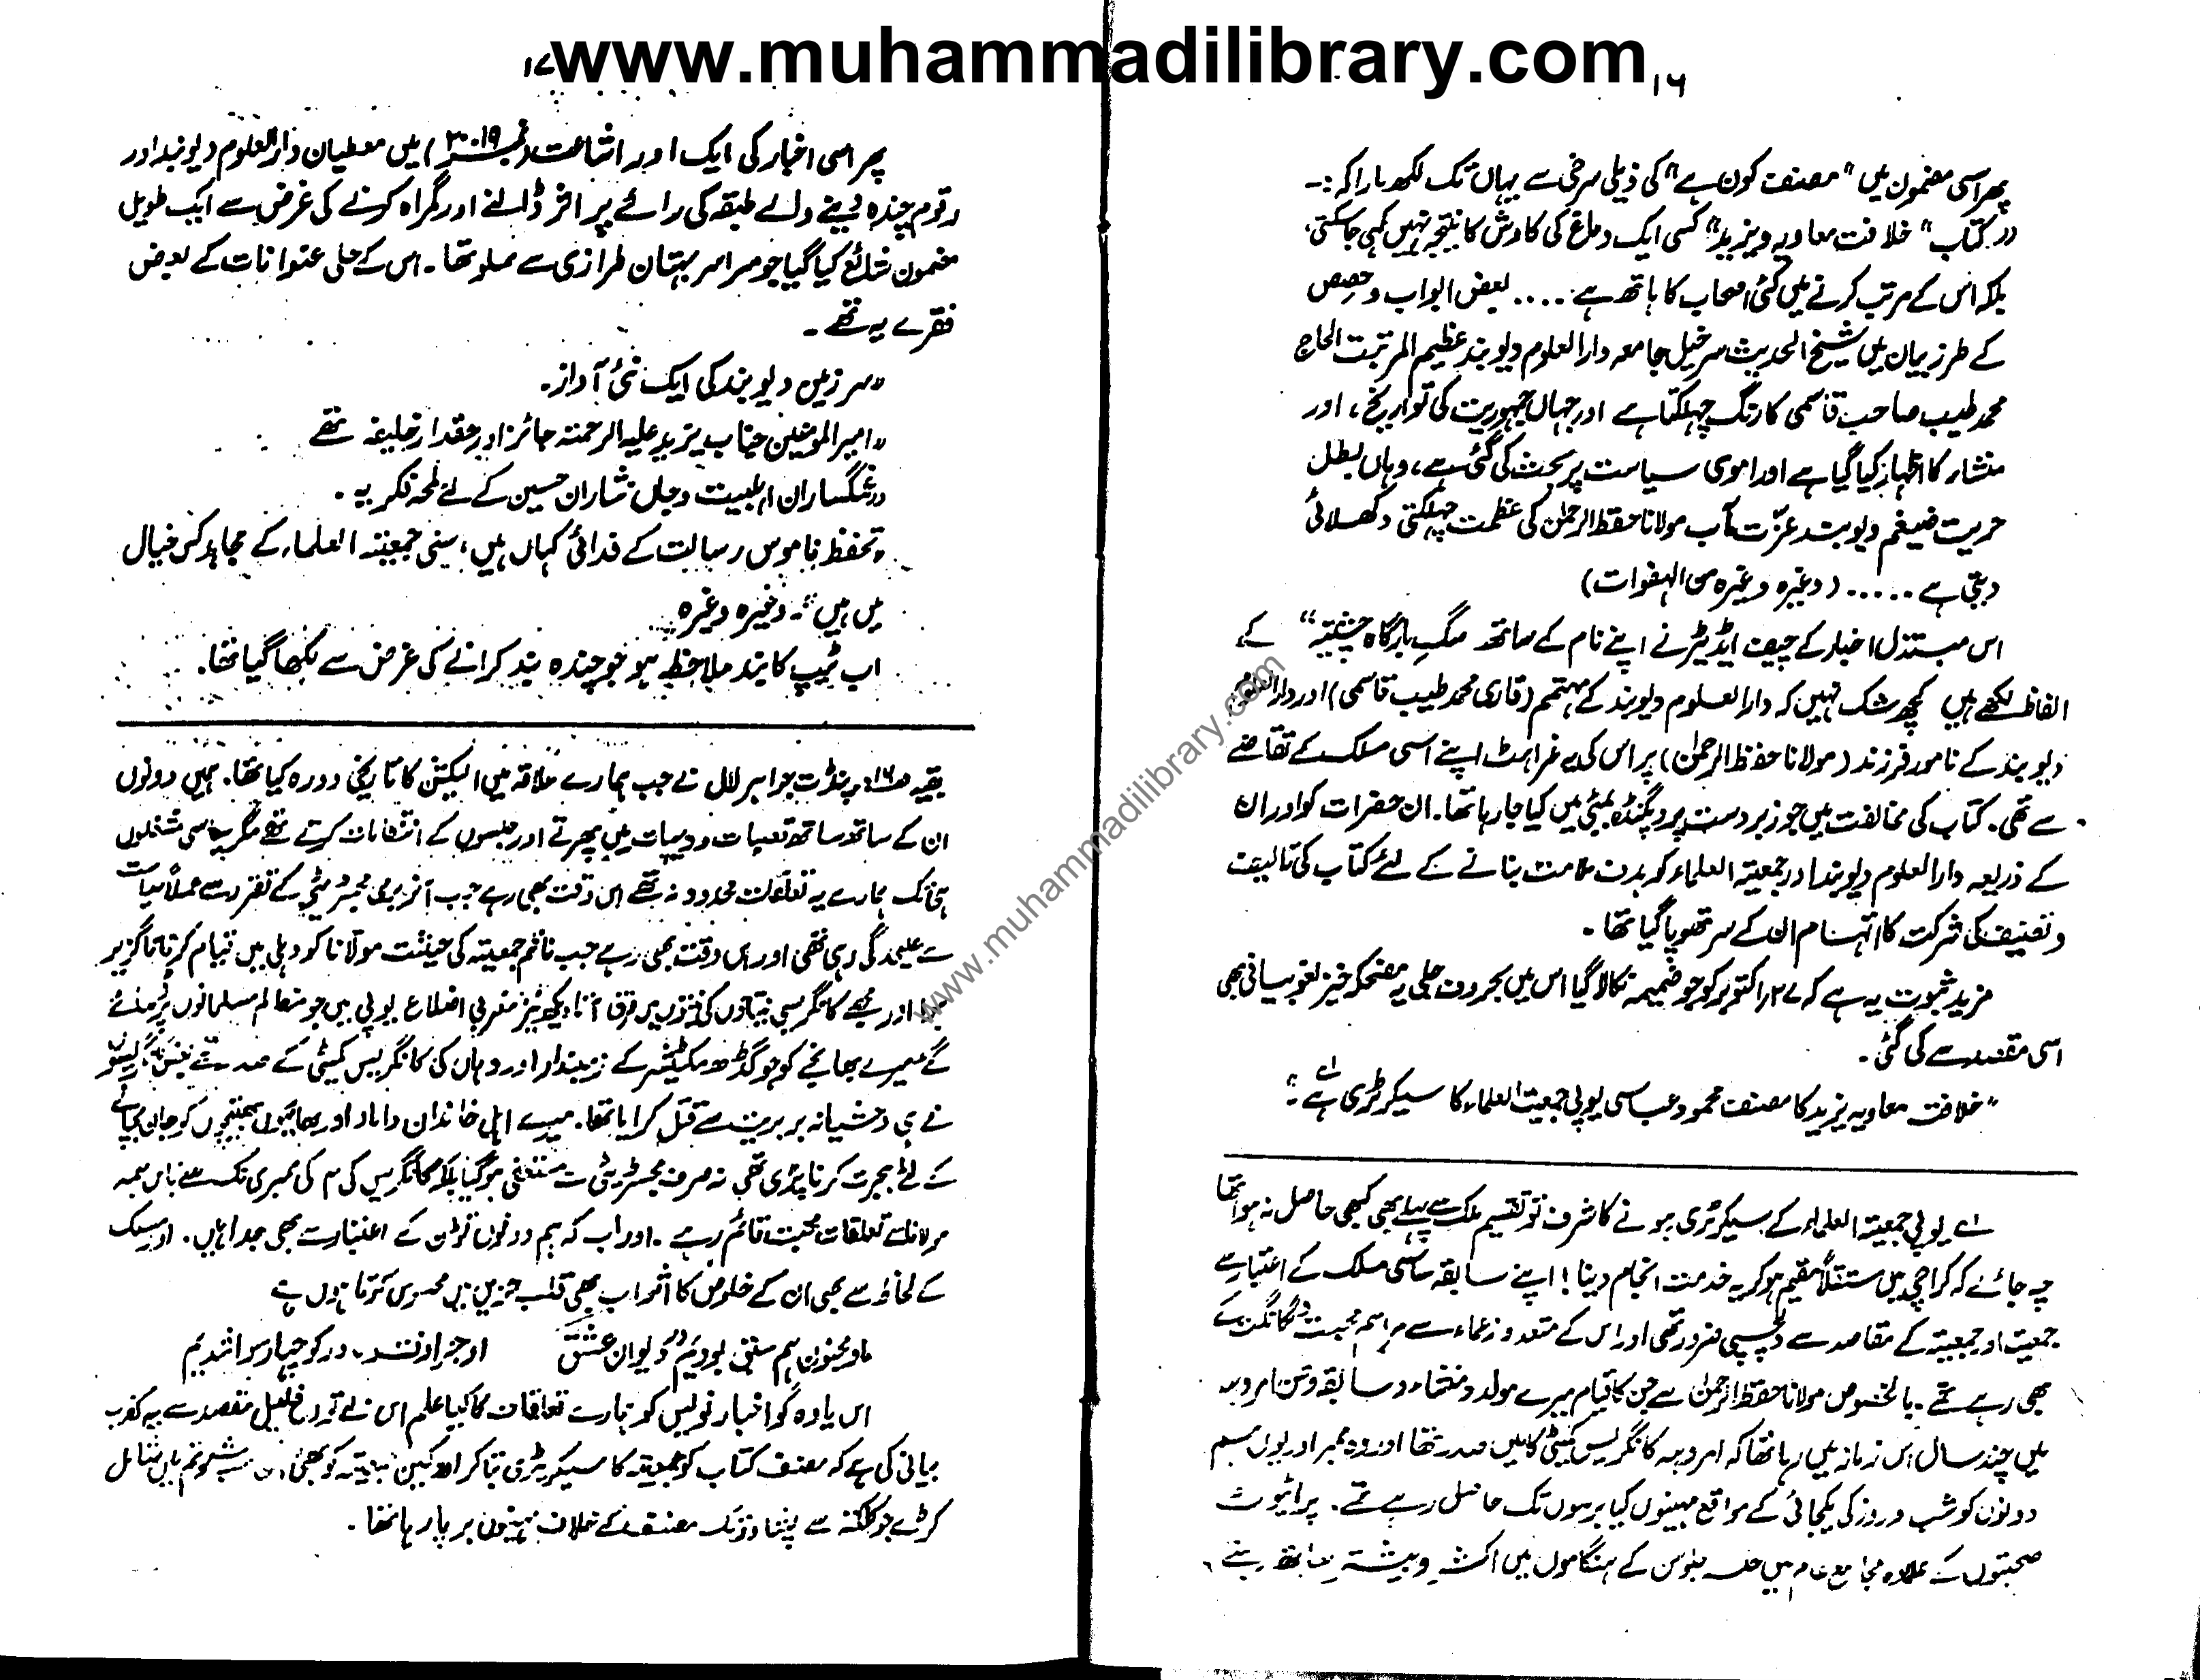 www.muhammadilibrary.com
۱۶
پھر اسی مضمون میں "مصنف کون ہے" کی ذیلی سرخی سے یہاں تک لکھ مارا کہ :-
"کتاب "خلافت معاویہ ویزید" کسی ایک دماغ کی کاوش کا نتیجہ نہیں کہی جاسکتی،
بلکہ اس کے مرتب کرنے میں کئی اصحاب کا ہاتھ ہے .... بعض ابواب وحصص
کے طرز بیان میں شیخ الحدیث سرخیل جامعہ دارالعلوم دیوبند عظیم المرتبت الحاج
محمد طیب صاحب قاسمی کا رنگ جھلکتا ہے اور جہاں جمہوریت کی تواریخ، اور
منشاء کا اظہار کیا گیا ہے اور اموی سیاست پر بحث کی گئی ہے، وہاں بطل
حریت ضیغم دیوبند عزت مآب مولانا حفظ الرحمٰن کی عظمت جھلکتی دکھلائی
دیتی ہے ..... (وغیرہ وغیرہ من الہفوات)
اس مبتذل اخبار کے چیف ایڈیٹر نے اپنے نام کے ساتھ سگِ بارگاہ چشتیہ" کے
الفاظ لکھے ہیں کچھ شک نہیں کہ دارالعلوم دیوبند کے مہتمم (قاری محمد طیب قاسمی) اور دارالعلوم
دیوبند کے نامور فرزند (مولانا حفظ الرحمٰن) پر اس کی یہ غراہٹ اپنے اسی مسلک کے تقاضے
سے تھی۔ کتاب کی مخالفت میں جو زبردست پروپگنڈہ بمبئی میں کیا جارہا تھا۔ ان حضرات کو اور ان
کے ذریعہ دارالعلوم دیوبند اور جمعیتہ العلماء کو ہدف ملامت بنانے کے لئے کتاب کی تالیف
و تصنیف کی شرکت کا اتہام ان کے سر تھوپا گیا تھا۔
مزید ثبوت یہ ہے کہ ۲۷ اکتوبر کو جو ضمیمہ نکالا گیا اس میں بحروف جلی یہ مضحکہ خیز لغو بیانی بھی
اسی مقصد سے کی گئی۔
"خلافت معاویہ یزید کا مصنف محمود عباسی یوپی جمعیت العلماء کا سیکرٹری ہے"
یوپی جمعیۃ العلماء کے سیکریٹری ہونے کا شرف تو تقسیم ملک سے پہلے بھی کبھی حاصل نہ ہوا تھا
چہ جائے کہ کراچی میں مستقلاً مقیم ہوکر یہ خدمت انجام دینا! اپنے سابقہ سیاسی مسلک کے اعتبار سے
جمعیت اور جمعیتہ کے مقاصد سے دلچسپی ضرور تھی اور اس کے متعدد زعماء سے مراسم محبت و یگانگت کے
بھی رہے تھے۔ بالخصوص مولانا حفظ الرحمٰن سے جن کا قیام میرے مولد و منشاء و سابقہ وطن امروہہ
میں چند سال اس زمانہ میں رہا تھا کہ امروہہ کانگریس کمیٹی کا میں صدر تھا اور وہ ممبر اور یوں ہم
دونوں کو شب و روز کی یکجائی کے مواقع مہینوں کیا برسوں تک حاصل رہے تھے۔ پرائیوٹ
صحبتوں کے علاوہ مجامع عام میں جلسہ جلوس کے ہنگاموں میں اکثر و بیشتر سابقہ رہتے
۱۷
پھر اسی اخبار کی ایک اور اشاعت (نمبر ۳۰۱۹) میں معطیان دارالعلوم دیوبند اور
رقوم چندہ دینے والے طبقہ کی رائے پر اثر ڈالنے اور گمراہ کرنے کی غرض سے ایک طویل
مضمون شائع کیا گیا جو سراسر بہتان طرازی سے مملو تھا۔ اس کے جلی عنوانات کے بعض
فقرے یہ تھے۔
"سرزمین دیوبند کی ایک نئی آواز۔
"امیر المومنین جناب یزید علیہ الرحمتہ جائز اور حقدار خلیفہ تھے
"غمگساران اہلبیت و جاں نثاران حسین کے لئے لمحہ فکریہ۔
"تحفظ ناموس رسالت کے فدائی کہاں ہیں، سنی جمعیتہ العلماء کے مجاہد کس خیال
میں ہیں"۔ وغیرہ وغیرہ
اب ٹیپ کا بند ملاحظہ ہو جو چندہ بند کرانے کی غرض سے لکھا گیا تھا۔
بقیہ ص۱۶: پنڈت جواہر لال نے جب ہمارے علاقہ میں الیکشن کا تاریخی دورہ کیا تھا۔ ہمیں دونوں
ان کے ساتھ ساتھ قصبات و دیہات میں پھرتے اور جلسوں کے انتظامات کرتے تھے مگر سیاسی مشغلوں
ہی تک ہمارے یہ تعلقات محدود نہ تھے اس وقت بھی رہے جب آنریری مجسٹریٹی کے تقرر سے عملاً سیاست
سے علیحدگی رہی تھی اور اس وقت بھی رہے جب ناظم جمعیتہ کی حیثیت مولانا کو دہلی میں قیام کرنا ناگزیر
ہوا اور مجھے کانگریسی نیتاؤں کی نیتوں میں فرق آتا دیکھ نیز مغربی اضلاع یوپی میں جو مظالم مسلمانوں پر ڈھائے
گئے میرے بھانجے کو جو گڈھ مکٹیشر کے زمیندار اور وہاں کی کانگریس کمیٹی کے صدر تھے
نے ہی وحشیانہ بربریت سے قتل کرایا تھا۔ میرے اہل خاندان داماد اور بھائیوں بھتیجوں کو جان بچانے
کے لئے ہجرت کرنا پڑی تھی نہ صرف مجسٹریٹی سے مستعفی ہوگیا بلکہ کانگریس کی ممبری تک سے باں ہمہ
مولانا سے تعلقات محبت قائم رہے۔ اور اب کہ ہم دونوں وطن کے اعتبار سے بھی جدا ہیں۔ اور مسلک
کے لحاظ سے بھی ان کے خلوص کا اثر اب بھی قلب حزیں میں محسوس کرتا ہوں
ما و مجنون ہم سبق بودیم در دیوان عشق او بصحرا رفت و در کوچہا رسوا شدیم
اس یاوہ گو اخبار نویس کو ہمارے تعلقات کا کیا علم اس نے تو مقصد سے یہ کذب
بیانی کی ہے کہ مصنف کتاب کو جمعیتہ کا سیکریٹری بتا کر اراکین جمعیتہ کو بھی اس میں شامل
کرے جو کلکتہ سے پشاور تک مصنف کے خلاف برپا رہا تھا۔
www.muhammadilibrary.com